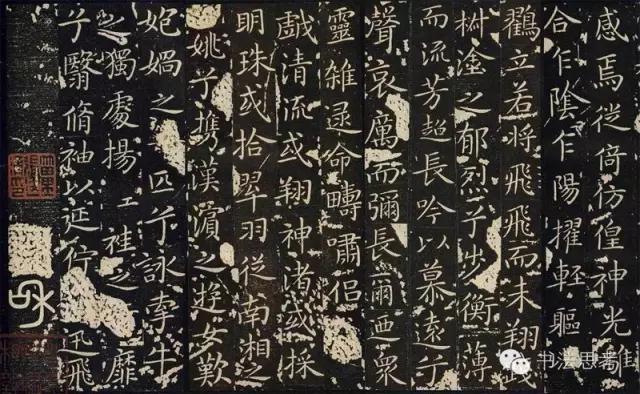 感焉徙倚仿徨神光離
合乍陰乍陽擢輕軀
鶴立若將飛飛而未翔踐
椒塗之郁烈兮步衡薄
而流芳超長吟以慕遠兮
聲哀厲而彌長爾迺眾
靈雜遝命疇嘯侶
戲清流或翔神渚或採
明珠或拾翠羽從南湘之
姚兮攜漢濱之遊女歎
媧之匹兮詠牽牛
之獨處揚袿之靡
兮翳脩袖以延佇迅飛
书法思